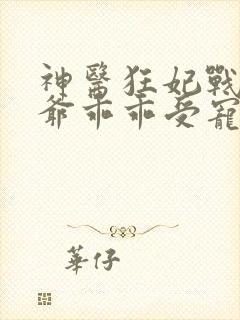 神醫狂妃戰
爺乖乖受寵
華仔